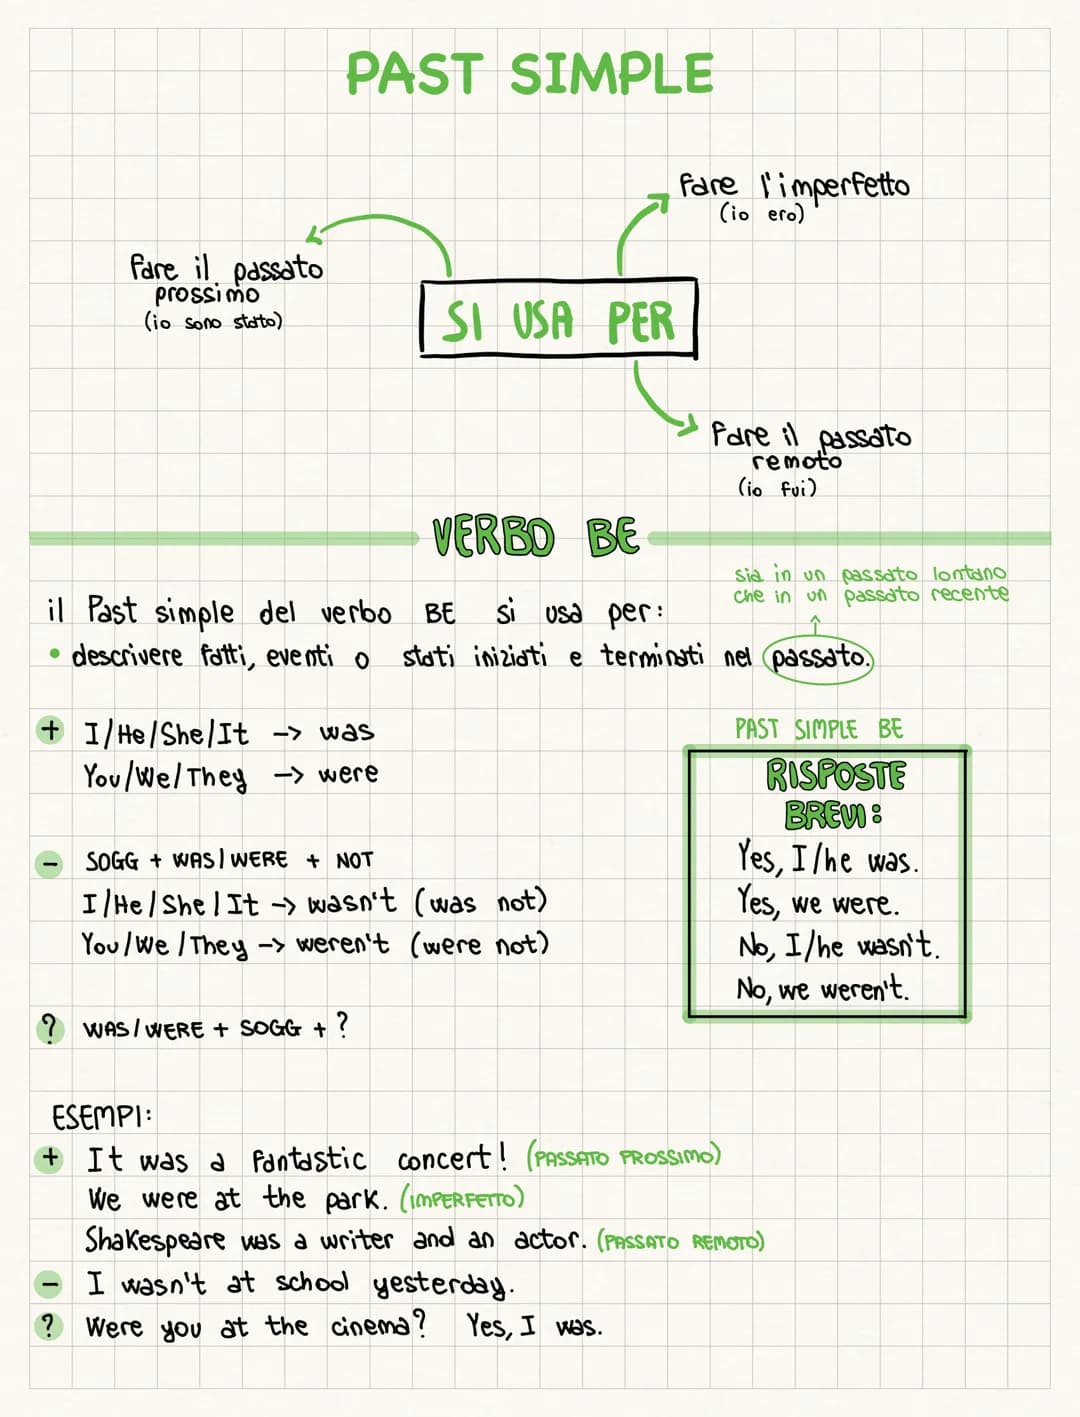 PAST SIMPLE
fare l'imperfetto
(io ero)
fare il passato
prossimo
(io sono stato)
SI USA PER
fare il passato
remoto
(io fui)
VERBO BE
sia in un passato lontano
che in un passato recente
il Past simple del verbo BE si usa per:
• descrivere fatti, eventi o stati iniziati e terminati nel passato.
+ I/He/She/It -> was
You/We/They -> were
PAST SIMPLE BE
RISPOSTE
BREVI:
Yes, I/he was.
Yes, we were.
No, I/he wasn't.
No, we weren't.
- SOGG + WAS/WERE + NOT
I/He/She/It -> wasn't (was not)
You/We/They -> weren't (were not)
? WAS/WERE + SOGG + ?
ESEMPI:
+ It was a fantastic concert! (PASSATO PROSSIMO)
We were at the park. (IMPERFETTO)
Shakespeare was a writer and an actor. (PASSATO REMOTO)
- I wasn't at school yesterday.
? Were you at the cinema? Yes, I was.